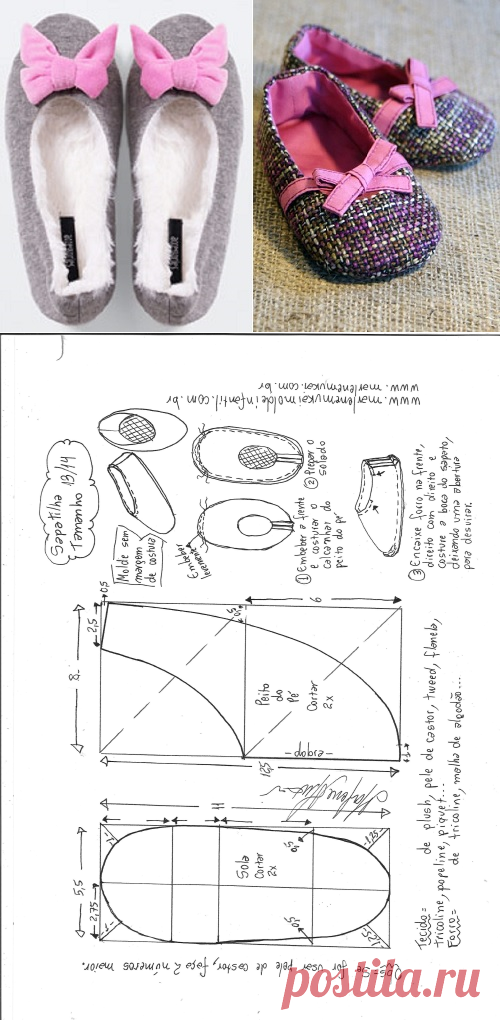 www.marlenemukaimoldeinfantil.com.br
www.marlenemukai.com.br
Sapatilha 13/14
Tamanho
Molde sem
margem
de costura
Embeber
levemente
① Embeber a frente
e costurar o
calcanhar do
peito do pé
② Prepar o
solado
③ Encaixe forro na frente,
direito com direito e
costure a boca do sapato,
deixando uma abertura
para desvirar.
0,5
2,5
8
0,5
9
Peito
do
Pé
Cortar
2x
-dobra-
1
12,5
11
5,5
2,75
-1-
-1-
Sola
Cortar
2x
0,5
0,5
-1,25-
1,25
Tecido= de plush, pele de castor, tweed, flanela,
tricoline, popeline, piquet...
Forro= de tricoline, malha de algodão...
Obs= Se for usar pele de castor, faça 2 números maior.
postila.ru